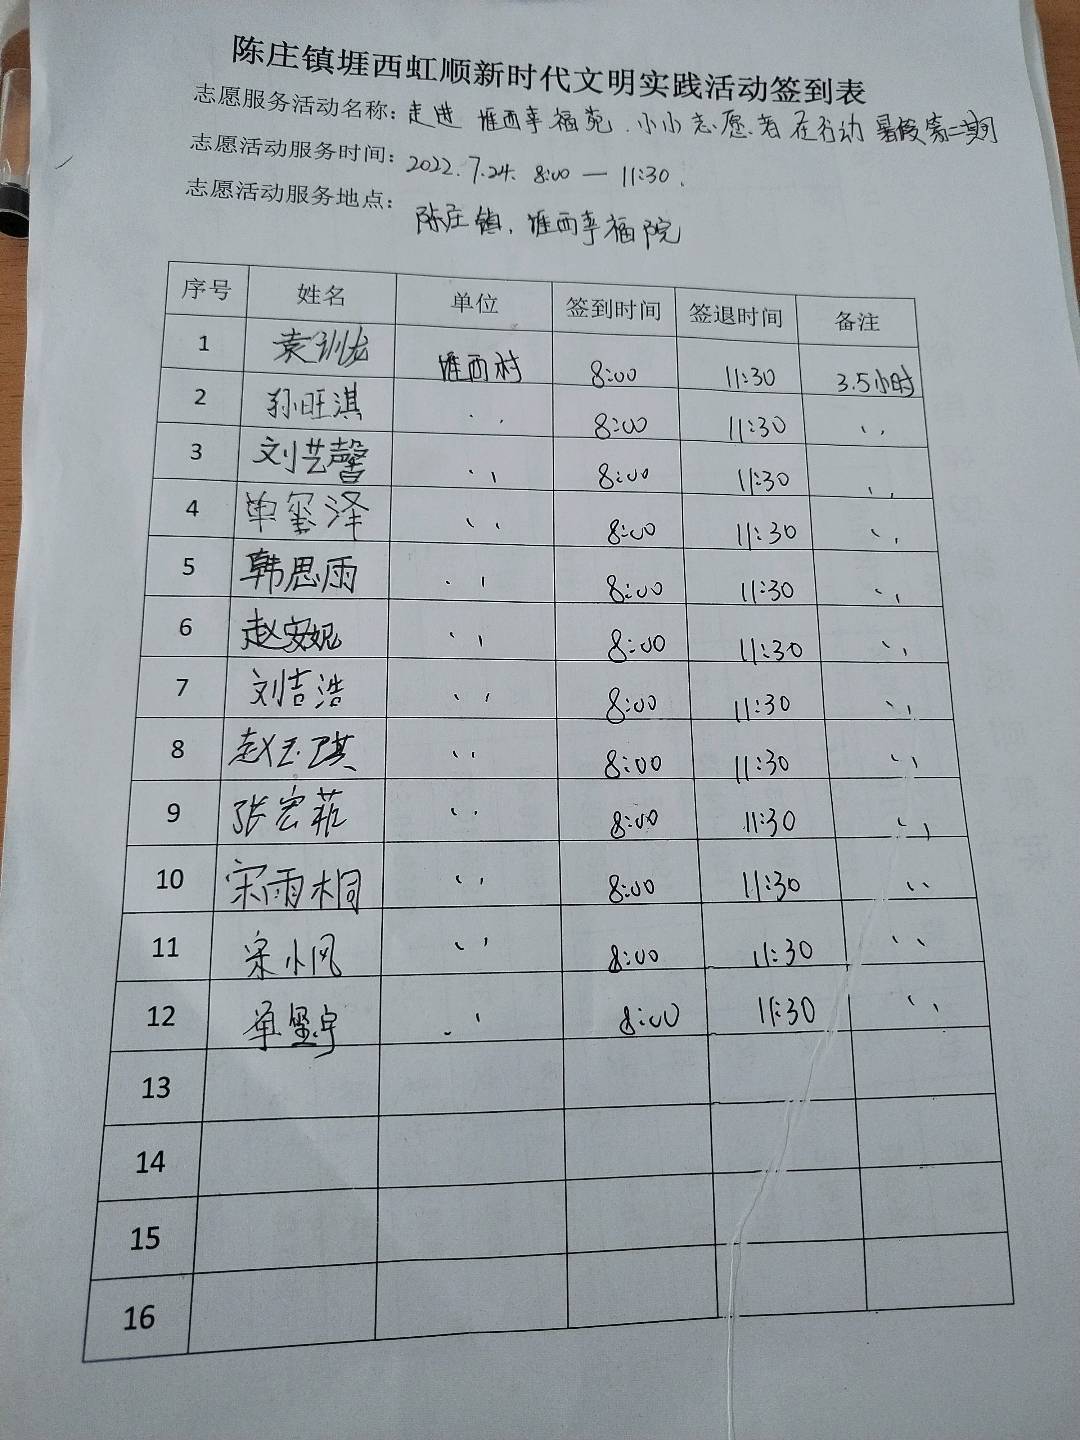 陈庄镇堐西虹顺新时代文明实践活动签到表
志愿服务活动名称：走进堐西幸福苑.小小志愿者在行动 暑假第二期
志愿活动服务时间：2022.7.24. 8:00 — 11:30.
志愿活动服务地点：陈庄镇.堐西幸福院
序号 姓名 单位 签到时间 签退时间 备注
1 袁训龙 堐西村 8:00 11:30 3.5小时
2 孙旺淇 〃 8:00 11:30 〃
3 刘艺馨 〃 8:00 11:30 〃
4 单玺泽 〃 8:00 11:30 〃
5 韩思雨 〃 8:00 11:30 〃
6 赵安妮 〃 8:00 11:30 〃
7 刘吉浩 〃 8:00 11:30 〃
8 赵玉琪 〃 8:00 11:30 〃
9 张宏菲 〃 8:00 11:30 〃
10 宋雨桐 〃 8:00 11:30 〃
11 宋小风 〃 8:00 11:30 〃
12 单玺宇 〃 8:00 11:30 〃
13
14
15
16